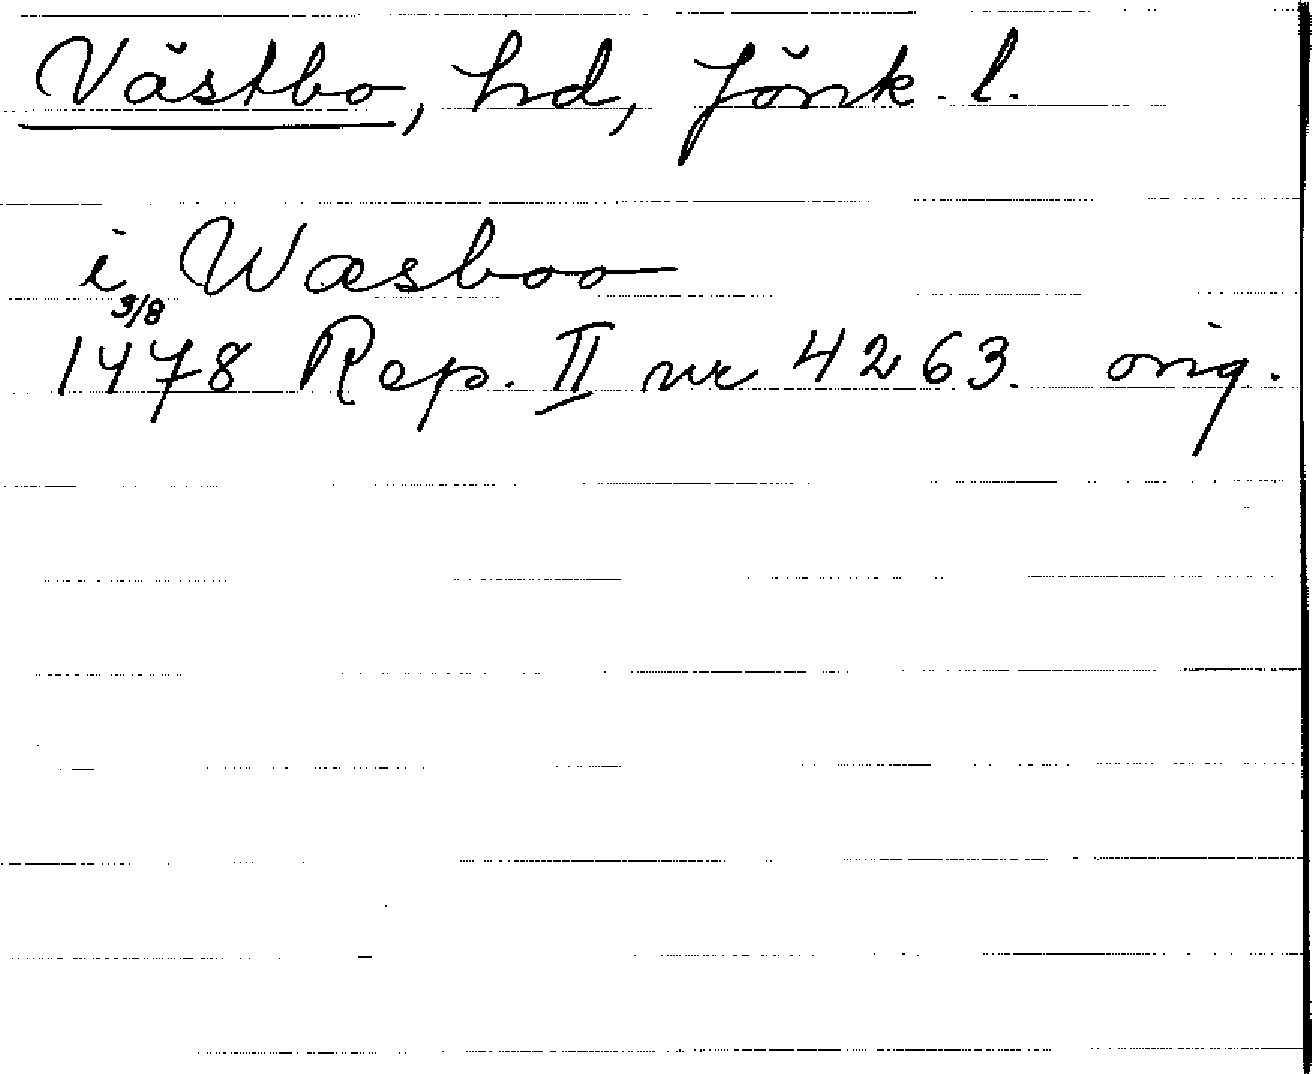 Västbo, hd, Jönk. l.
i Wæsboo
3/8
1478 Rep. II nr 4263. orig.